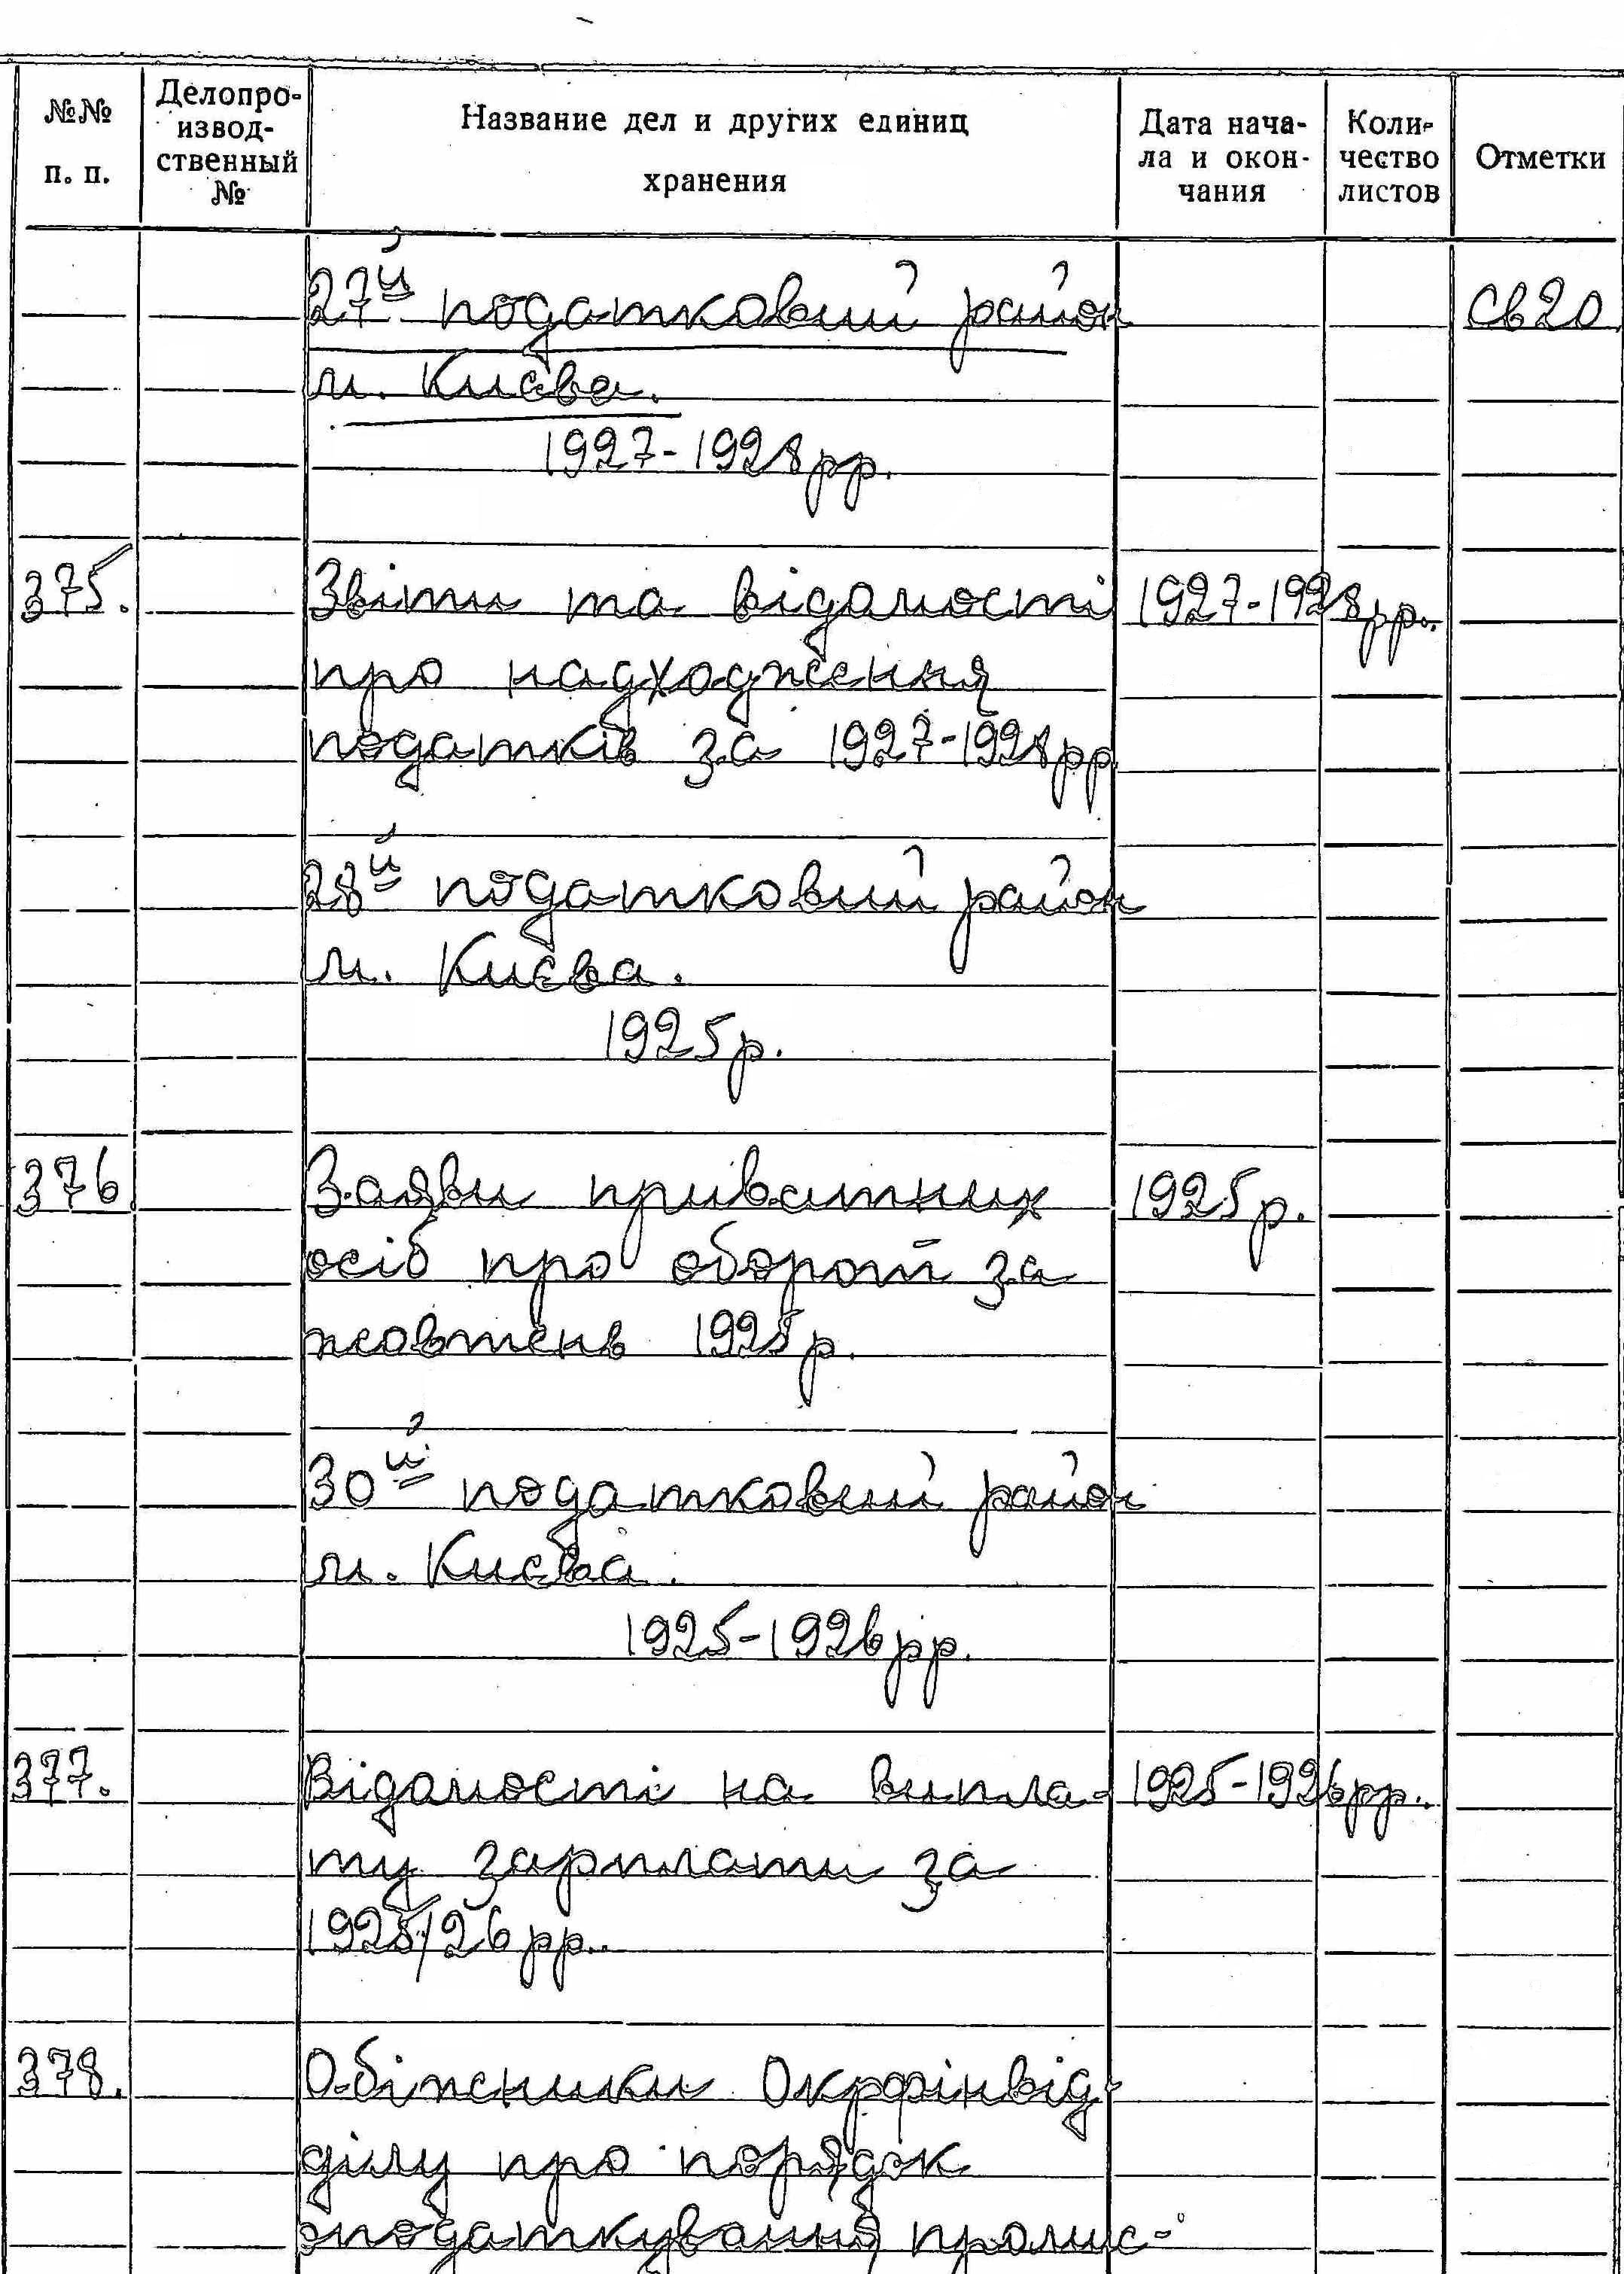 №№ п. п.
Делопро-
извод-
ственный
№
Название дел и других единиц
хранения
Дата нача-
ла и окон-
чания
Коли-
чество
листов
Отметки
27й податковий район
св20
м. Києва.
1927-1928рр.
375.
Звіти та відомості
1927-1928рр.
про надходження
податків за 1927-1928рр
28й податковий район
м. Києва.
1925р.
376
Заяви приватних
1925р.
осіб про оборот за
жовтень 1925р.
30й податковий район
м. Києва.
1925-1926рр.
377.
Відомості на випла-
1925-1926рр.
ту зарплати за
1925/26рр.
378.
Обіжники Окрфінвід-
ділу про порядок
оподаткування промис-